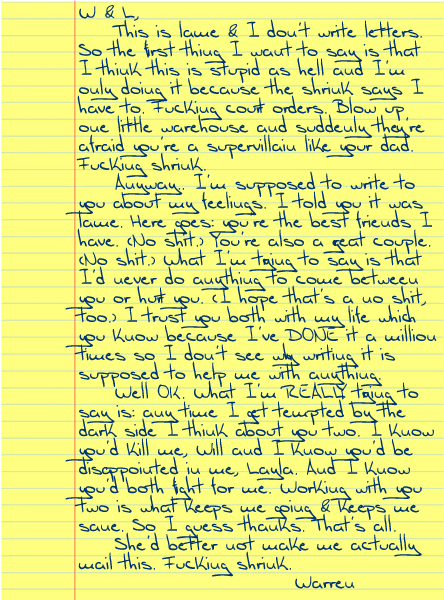 W & L,
This is lame & I don't write letters.
So the first thing I want to say is that
I think this is stupid as hell and I'm
only doing it because the shrink says I
have to. Fucking court orders. Blow up
one little warehouse and suddenly they're
afraid you're a supervillain like your dad.
Fucking shrink.
Anyway. I'm supposed to write to
you about my feelings. I told you it was
lame. Here goes: you're the best friends I
have. (No shit.) You're also a great couple.
(No shit.) What I'm trying to say is that
I'd never do anything to come between
you or hurt you. (I hope that's a no shit,
too.) I trust you both with my life which
you know because I've DONE it a million
times so I don't see why writing it is
supposed to help me with anything
Well OK. What I'm REALLY trying to
say is: any time I get tempted by the
dark side I think about you two. I know
you'd kill me, Will and I know you'd be
disappointed in me, Layla. And I know
you'd both fight for me. Working with you
two is what keeps me going & keeps me
sane. So I guess thanks. That's all.
She'd better not make me actually
mail this. Fucking shrink.
Warren